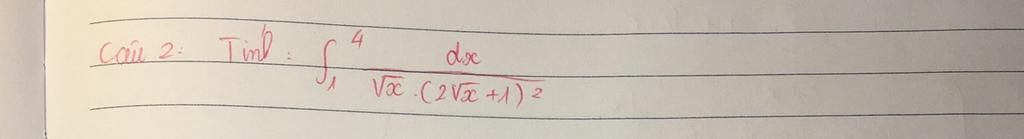 Câu 2: Tính: ∫₁⁴ dx / (√x · (2√x + 1)²)